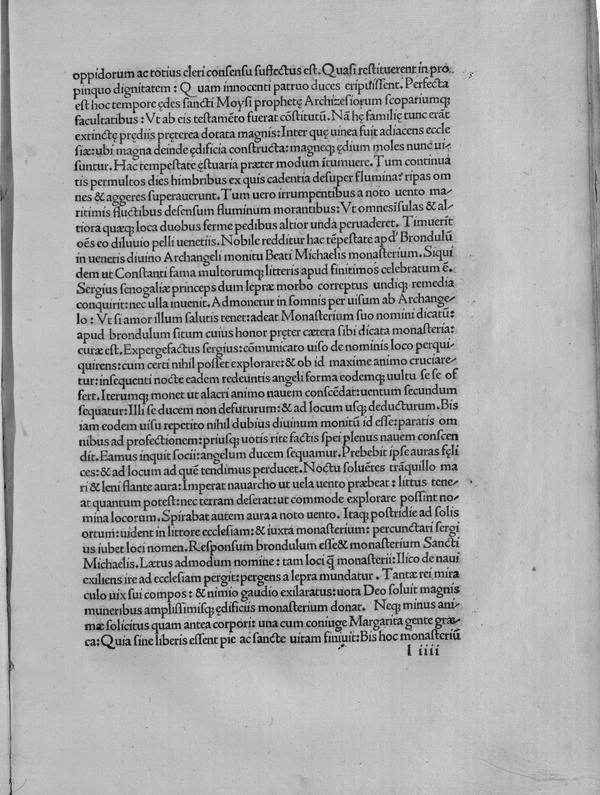 oppidorum ac totius cleri consensu suffectus est. Quasi restituerent in pro
pinquo dignitatem: Quam innocenti patruo duces eripuissent. Perfecta
est hoc tempore ędes sancti Moysi prophetę Archizesiorum scopariumq;
facultatibus: Vt ab eis testamēto fuerat cōstitutū. Nā hę familię tunc erāt
extinctę prędiis pręterea dotata magnis: Inter quę uinea fuit adiacens eccle
siæ: ubi magna deinde ędificia constructa: magneq; ędium moles nunc ui-
suntur. Hac tempestate ęstuaria præter modum ītumuere. Tum continuā
tis permultos dies himbribus ex quis cadentia desuper flumina: ripas om
nes & aggeres superauerunt. Tum uero irrumpentibus a noto uento ma-
ritimis fluctibus defensum fluminum morantibus: Vt omnes īsulas & al-
tiora quæq; loca duobus ferme pedibus altior unda peruaderet. Timuerūt
oēs eo diluuio pelli uenetiis. Nobile redditur hac tēpestate apd' Brondulū
in uenetis diuino Archangeli monitu Beati Michaelis monasterium. Siqui
dem ut Constanti fama multorumq; litteris apud finitimos celebratum ē.
Sergius senogaliæ princeps dum lepræ morbo correptus undiq; remedia
conquirit: nec ulla inuenit. Admonetur in somnis per uisum ab Archange-
lo: Vt si amor illum salutis tenet: adeat Monasterium suo nomini dicatū:
apud brondulum situm cuius honor pręter cætera sibi dicata monasteria:
curæ est. Expergefactus sergius: cōmunicato uiso de nominis loco perqui-
quirens: cum certi nihil posset explorare: & ob id maxime animo cruciare-
tur: insequenti nocte eadem redeuntis angeli forma eodemq; uultu se se of
fert. Iterumq; monet ut alacri animo nauem conscēdat: uentum secundum
sequatur: Illi se ducem non defuturum: & ad locum usq; deducturum. Bis
iam eodem uisu repetito nihil dubius diuinum monitū id esse: paratis om
nibus ad profectionem: priusq; uotis rite factis spei plenus nauem conscen
dit. Eamus inquit socii: angelum ducem sequamur. Prebebit ipse auras fęli
ces: & ad locum ad quē tendimus perducet. Noctu soluētes trāquillo ma
ri & leni flante aura: Imperat nauarcho ut uela uento præbeat: littus tene-
at quantum potest: nec terram deserat: ut commode explorare possint no-
mina locorum. Spirabat autem aura a noto uento. Itaq; postridie ad solis
ortum: uident in littore ecclesiam: & iuxta monasterium: percunctari sergi
us iubet loci nomen. Responsum brondulum esse & monasterium Sancti
Michaelis. Lætus admodum nomine: tam loci q̄ monasterii: Ilico de naui
exiliens ire ad ecclesiam pergit: pergens a lepra mundatur. Tantæ rei mira
culo uix sui compos: & nimio gaudio exilaratus: uota Deo soluit magnis
muneribus amplissimisq; ędificiis monasterium donat. Neq; minus ani-
mæ solicitus quam antea corpori: una cum coniuge Margarita gente græ-
ca: Quia sine liberis essent pie ac sancte uitam finiuit: Bis hoc monasteriū
l iiii